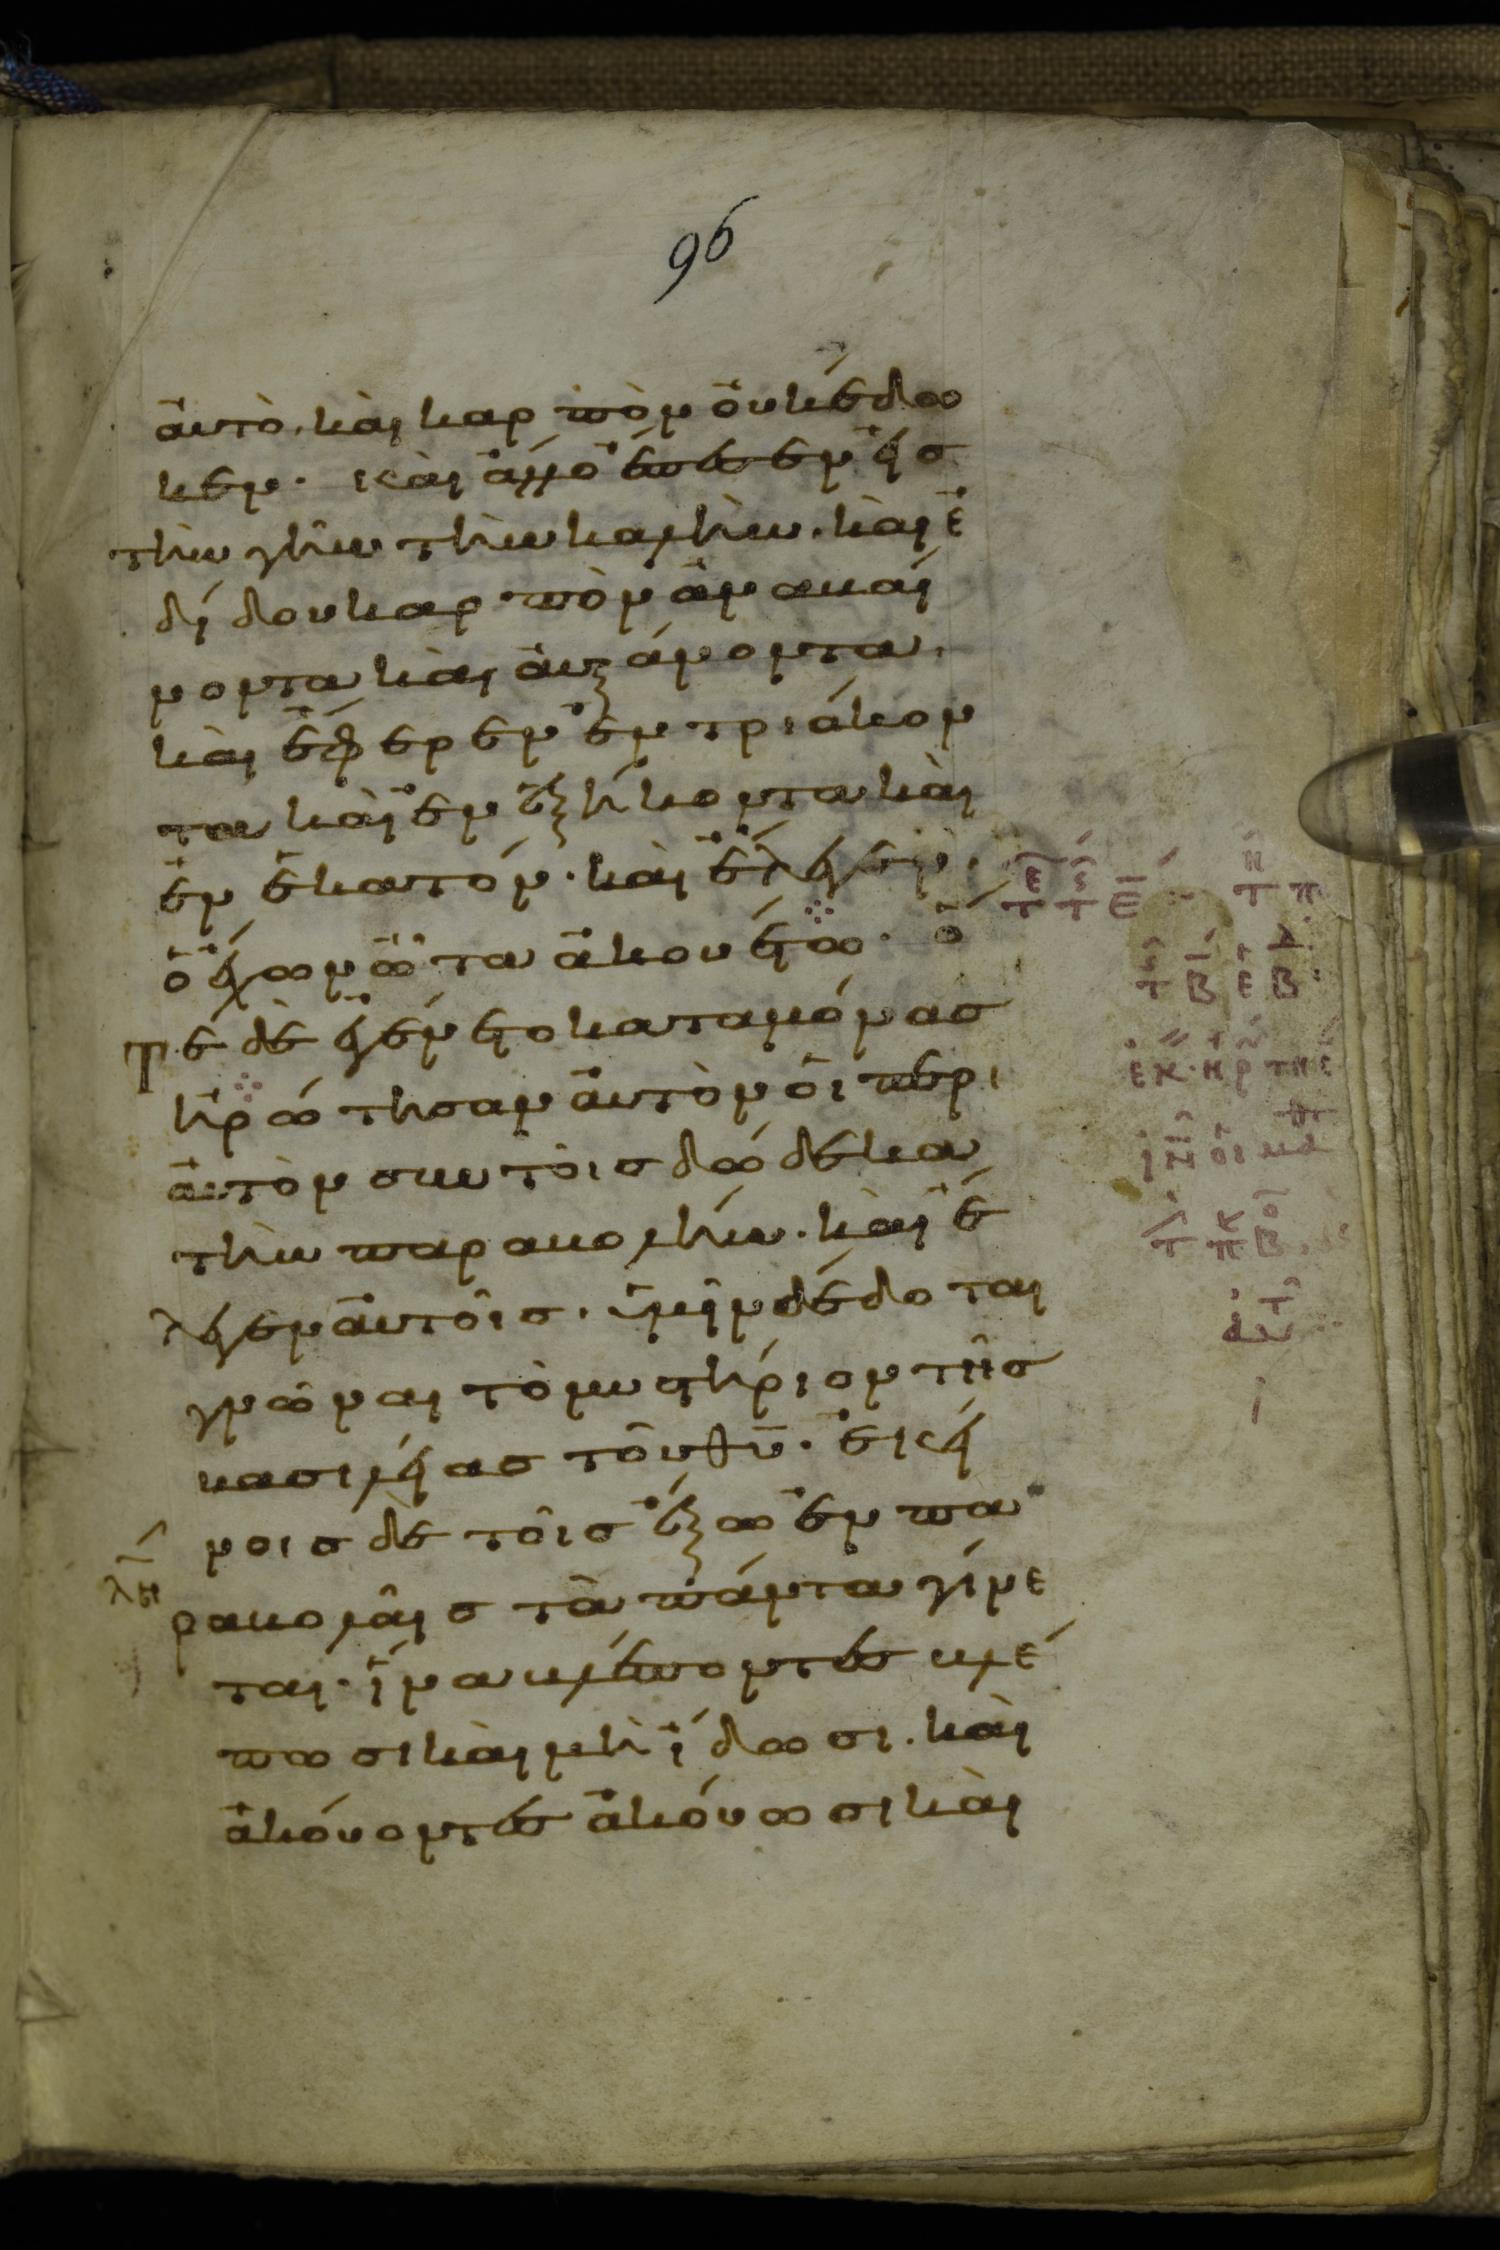 96
αὐτὸ. καὶ καρπὸν οὐκ ἔδω
κεν. καὶ ἄλλο ἔπεσεν εἰσ
τὴν γῆν τὴν καλὴν. καὶ ἐ
δίδου καρπὸν ἀναβαί
νοντα καὶ αὐξάνοντα.
καὶ ἔφερεν ἐν τριάκον
τα καὶ ἐν ἑξήκοντα καὶ
ἐν ἑκατόν. καὶ ἔλεγεν.
ὁ ἔχων ὦτα ἀκουέτω. ὅ
τε δὲ ἐγένετο καταμόνασ
ἠρώτησαν αὐτὸν οἱ περι
αὐτὸν συν τοῖσ δώδεκα
τὴν παραβολήν. καὶ ἔ
λεγεν αὐτοῖσ. ὑμῖν δέδοται
γνῶναι τὸ μυστήριον τῆσ
βασιλείασ τοῦ θῦ. ἐκεί
νοισ δὲ τοῖσ ἔξω ἐν πα
ραβολαῖσ τὰ πάντα γίνε
ται. ἵνα βλέποντεσ βλέ
πωσι καὶ μὴ ἴδωσι. καὶ
ἀκούοντεσ ἀκούωσι καὶ